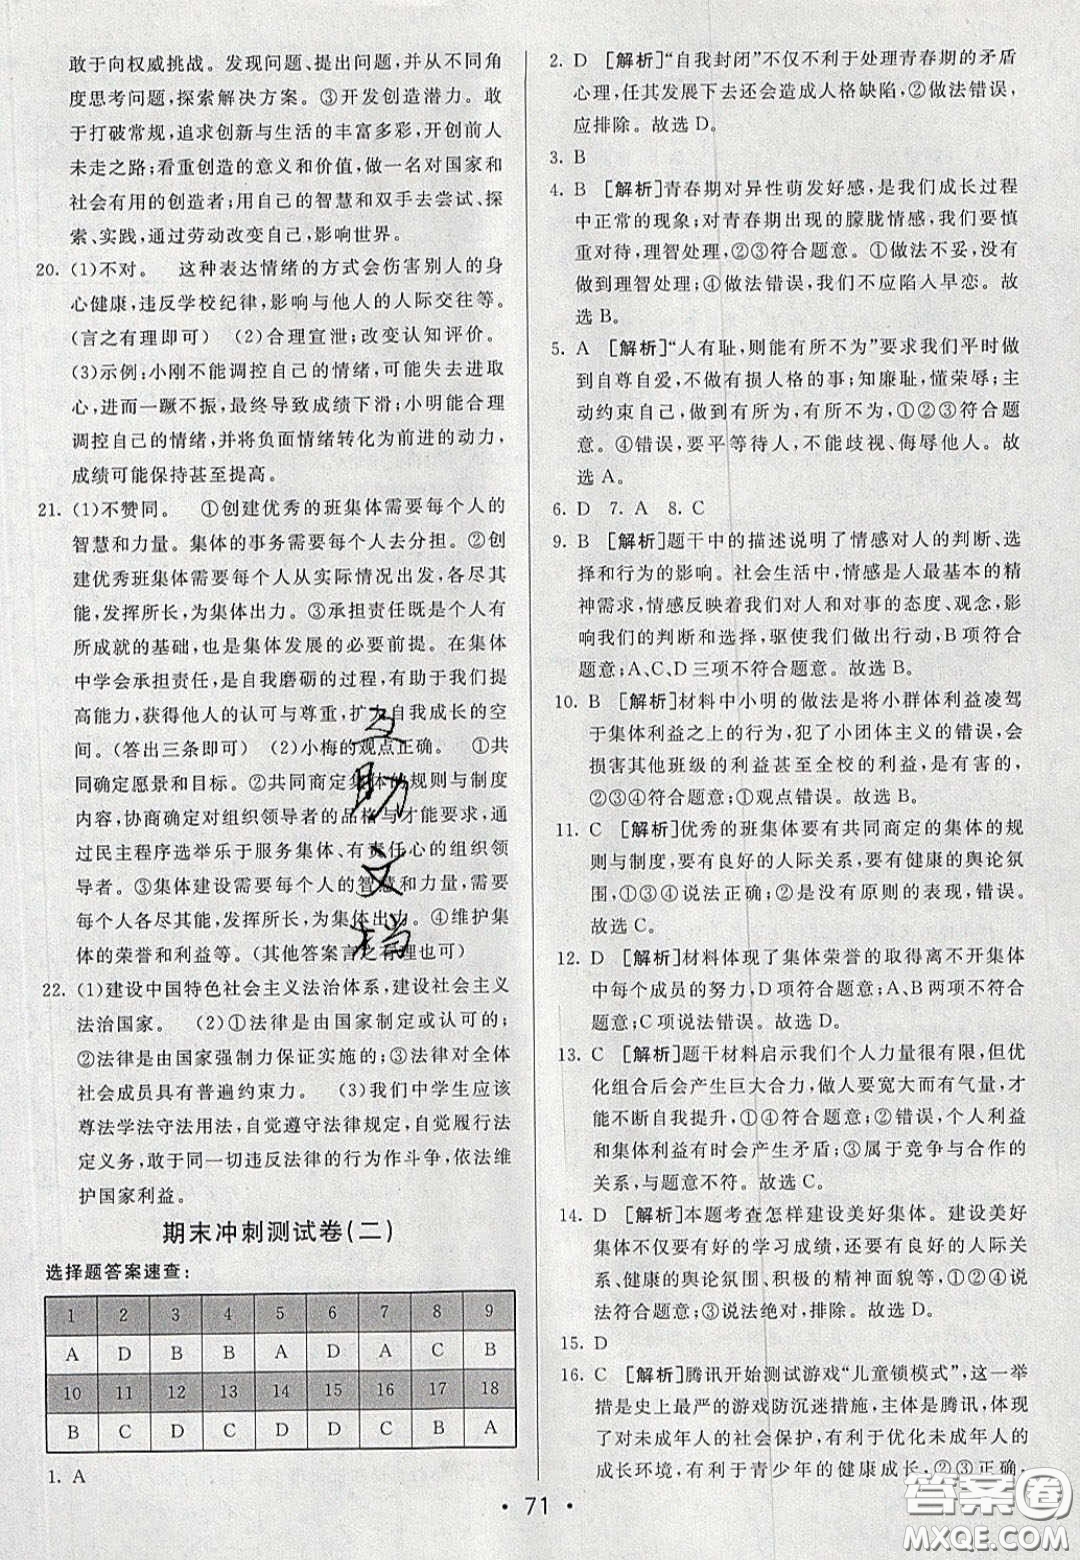 敢于向权威挑战。发现问题、提出问题,并尝试从不同角
度思考问题,探索解决方案。③开发创造潜力。敢
于打破常规,追求创新与生活的丰富多彩,开创前人
未走之路;看重创造的意义和价值,做一名对国家和
社会有用的创造者;用自己的智慧和双手去尝试、探
索、实践,通过劳动改变自己,影响世界。
20. (1)不对。 这种表达情绪的方式会伤害别人的身
心健康,违反学校纪律,影响与他人的人际交往等。
(言之有理即可) (2)合理宣泄;改变认知评价。
(3)示例:小刚不能调控自己的情绪,可能失去进取
心,进而一蹶不振,最终导致成绩下滑;小明能合理
调控自己的情绪,并将负面情绪转化为前进的动力,
成绩可能保持甚至提高。
21. (1)不赞同。 ①创建优秀的班集体需要每个人的
智慧和力量。集体的事务需要每个人去分担。②创
建优秀班集体需要每个人从实际情况出发,各尽其
能,发挥所长,为集体出力。③承担责任既是个人有
所成就的基础,也是集体发展的必要前提。在集体
中学会承担责任,是自我磨砺的过程,有助于我们提
高能力,获得他人的认可与尊重,扩大自我成长的空
间。(答出三条即可) (2)小梅的观点正确。 ①共
同确定愿景和目标。②共同商定集体的规则与制度
内容,协商确定对组织领导者的品格与才能要求,通
过民主程序选举乐于服务集体、有责任心的组织领
导者。③集体建设需要每个人的智慧和力量,需要
每个人各尽其能,发挥所长,为集体出力。④维护集
体的荣誉和利益等。(其他答案言之有理也可)
22. (1)建设中国特色社会主义法治体系,建设社会主义
法治国家。 (2)①法律是由国家制定或认可的;
②法律是由国家强制力保证实施的;③法律对全体
社会成员具有普遍约束力。 (3)我们中学生应该
尊法学法守法用法,自觉遵守法律规定,自觉履行法
定义务,敢于同一切违反法律的行为作斗争,依法维
护国家利益。
期末冲刺测试卷(二)
选择题答案速查:
1 2 3 4 5 6 7 8 9
A D B B A D A C B
10 11 12 13 14 15 16 17 18
B C D C D D C B A
1. A
2. D [解析]“自我封闭”不仅不利于处理青春期的矛盾
心理,任其发展下去还会造成人格缺陷,②做法错误,
应排除。故选 D。
3. B
4. B [解析]青春期对异性萌发好感,是我们成长过程
中正常的现象;对青春期出现的朦胧情感,我们要慎
重对待,理智处理,②③符合题意。①做法不妥,没有
做到理智处理;④做法错误,我们不应陷入早恋。故
选 B。
5. A [解析]“人有耻,则能有所不为”要求我们平时做
到自尊自爱,不做有损人格的事;知廉耻,懂荣辱;主
动约束自己,做到有所为,有所不为,①②③符合题
意。④错误,要平等待人,不能歧视、侮辱他人。故
选 A。
6. D 7. A 8. C
9. B [解析]题干中的描述说明了情感对人的判断、选
择和行为的影响。社会生活中,情感是人最基本的精
神需求,情感反映着我们对人和对事的态度、观念,影
响我们的判断和选择,驱使我们做出行动,B项符合
题意;A、C、D三项不符合题意。故选 B。
10. B [解析]材料中小明的做法是将小群体利益凌驾
于集体利益之上的行为,犯了小团体主义的错误,会
损害其他班级的利益甚至全校的利益,是有害的,
②③④符合题意;①观点错误。故选 B。
11. C [解析]优秀的班集体要有共同商定的集体的规
则与制度,要有良好的人际关系,要有健康的舆论氛
围,①③④说法正确;②是没有原则的表现,错误。
故选 C。
12. D [解析]材料体现了集体荣誉的取得离不开集体
中每个成员的努力,D项符合题意;A、B两项不符合
题意;C项说法错误。故选 D。
13. C [解析]题干材料启示我们个人力量很有限,但优
化组合后会产生巨大合力,做人要宽大而有气量,才
能不断自我提升,①④符合题意;②错误,个人利益
和集体利益有时会产生矛盾;③属于竞争与合作的
关系,与题意不符。故选 C。
14. D [解析]本题考查怎样建设美好集体。建设美好
集体不仅要有好的学习成绩,还要有良好的人际关
系、健康的舆论氛围、积极的精神面貌等,①②④说
法符合题意;③说法绝对,排除。故选 D。
15. D
16. C [解析]腾讯开始测试游戏“儿童锁模式”,这一举
措是史上最严的游戏防沉迷措施,主体是腾讯,体现
了对未成年人的社会保护,有利于优化未成年人的
成长环境,有利于青少年的健康成长,②③正确,
• 71 •
互助文档
答案圈
MXQE.COM